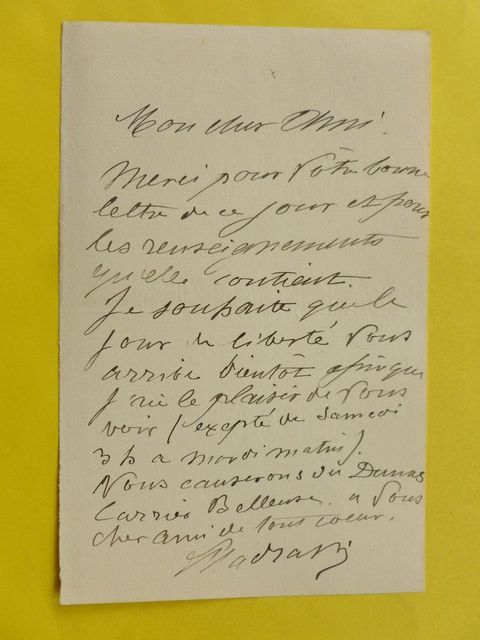 Mon cher Ami.
Merci pour Vôtre bonne
lettre de ce jour et pour
les renseignements
qu'elle contient.
Je souhaite que le
jour de liberté Vous
arrive bientôt afin que
j'aie le plaisir de Vous
voir (excepté de Samedi
3 h a mardi matin).
Nous causerons du Dumas
Carrier Belleuse. a Vous
cher ami de tout coeur.